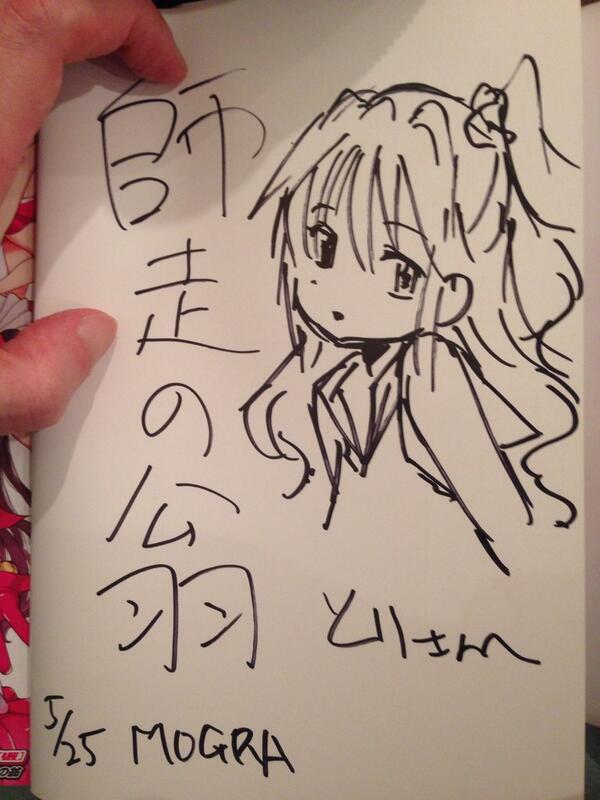 師走の翁
とりさん
5/25 MOGRA
の翁